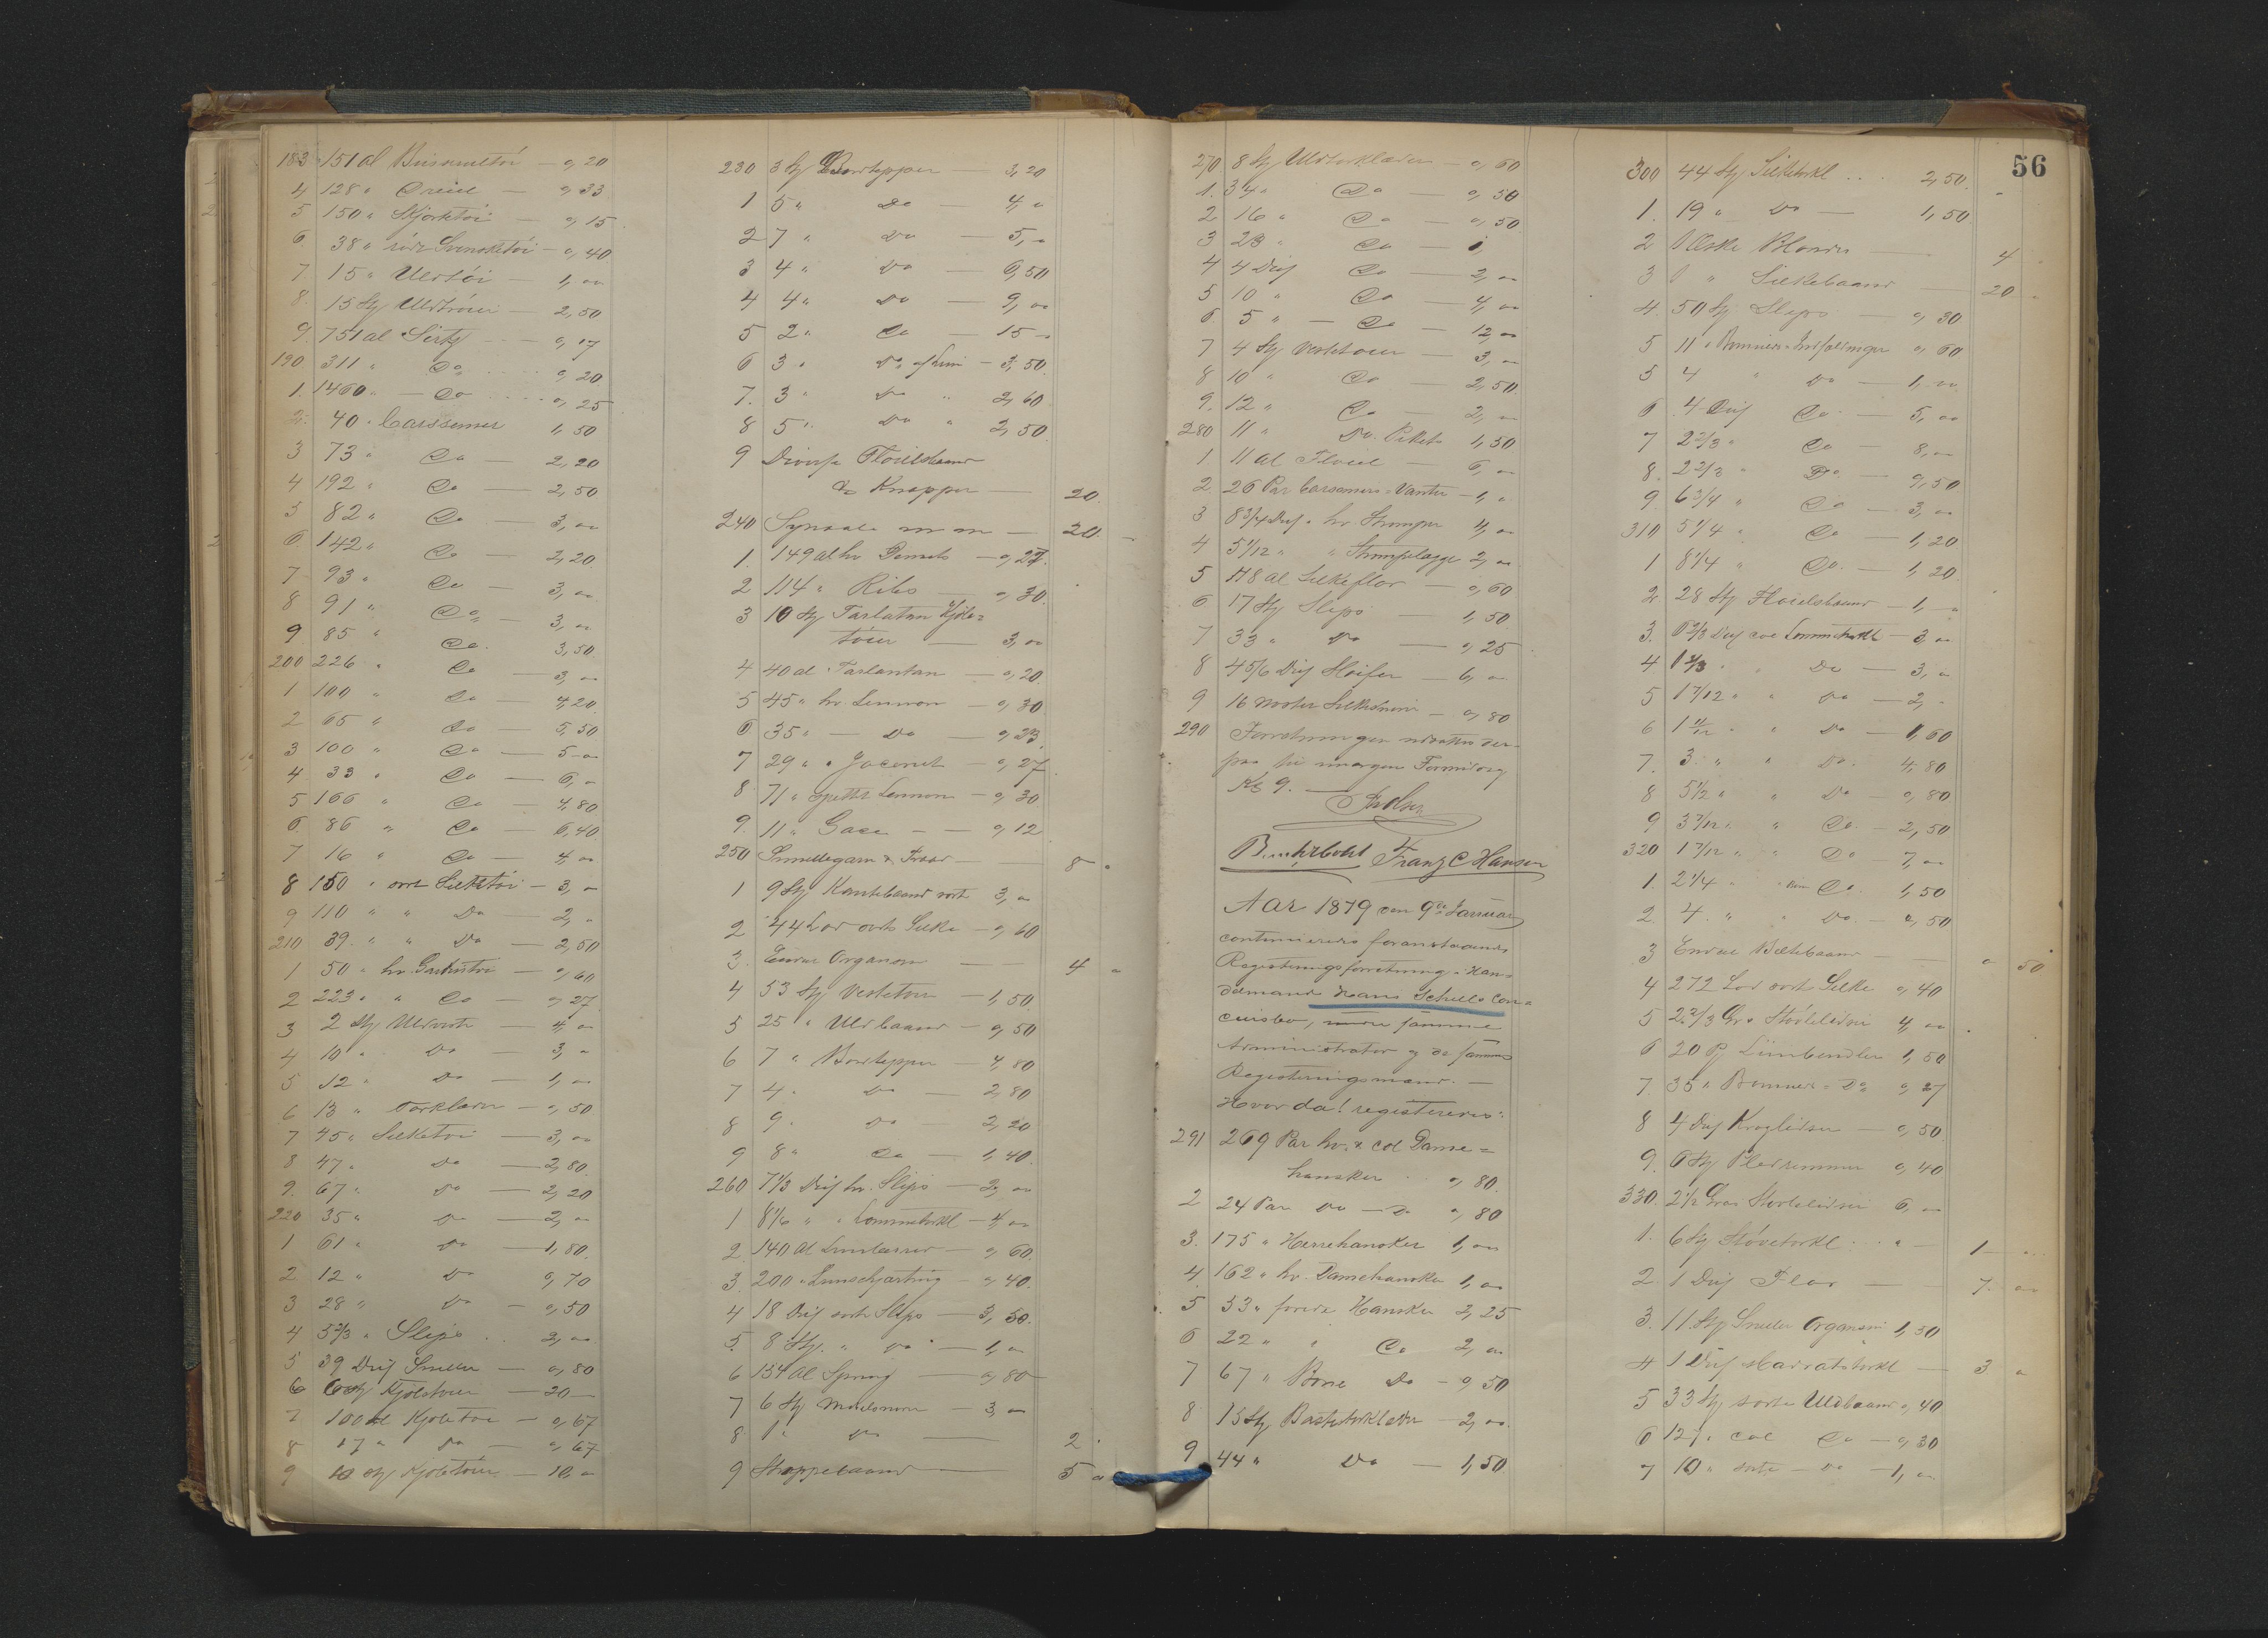 183 151 al Buisumstöi — 0,20
4 128 " Dreiel — 0,33
5 150 " Skjortetöi — 0,15
6. 38 " röde Svensketöi — 0,40
7 15 " Uldtöi — 1,00
8. 15 Stg Uldtröier — 2,50
9. 751 al Sirtz — 0,17
190 311 " Do 0,20
1. 1460 " — Do 0,25
2. 40 " Carssemer 1,50
3 73 " Do — 2,20
4 192 " Do — 2,50
5 82 " Do — 3,00
6. 142 " Do — 2,20
7 93 " Do — 3,00
8 91 " Do — 3,00
9 85 " Do. 3,50
200 226 " Do — 3,00
1 100 " Do — 4,20
2 65 " Do — 5,50
3 100 " Do — 5 00
4 33 " Do — 6,00
5 166 " Do — 4,80
6. 86 " Do — 6,40
7 16 " Do — 4,00
8 150 " sort Silketöi — 3,00
9 110 " " Do — 2,00
210 39 " " Do — 2,50
1 50 " hv. — 0,60
2 223 " " Do — 0,27
3 2 Stg — 4,00
4 10 " Do — 3,00
5 12 " Do — 1,00
6 13 " Torklæder — 0,50
7 45 " Silketöi — 3,00
8 47 " Do — 2,80
9. 67 " Do — 2,20
220 35 " Do — 2,00
1 61 " Do — 1,80
2 12 " Do 0,70
3 28 " Do — 0,50
4 5 2/3 " Slips . . 2,00
5 39 Dus Sneller — 0,80
6 6 Stg Kjoletöier — 20 —
7 100 al Kjoletöi — 0,67
8 17 " Do — 0,67
9 10 Stg Kjoletöier — 10,00
230 3 Stg Bordtepper — 3,20
1 5 " Do — 4,00
2 7 " Do — 5,00
3 4 " Do — 6,50
4 4 " Do — 9,00
5 2 " Do — 15 —
6 3 " Do af Liin — 3,50
7. 3 " Do " 2,60
8 5 " Do " 2,50
9 Diverse Floielsbaand
& Knapper — 20.
240 Synaale m m — 20. —
1. 149 al hv. — 0,27
2 114 " Ribs — 0,30
3 10 Stg Tarlatan Kjole=
töier — 3,00
4 40 al Tarlantan — 0,20
5 45 " hv. Lennon — 0,30
6 35 " — Do — 0,23
7 29 " " Jaconet — 0,27
8 71 " Lennon — 0,30
9. 11 " Gaze — — 0,12
250 Snellegarn & Traad — 8 "
1 9 Stg Kantebaand sort 3,00
2 44 Lod sort Silke — 0,60
3. Endel Organsin — 4 "
4 53 Stg Vestetöier — 1,50
5 25 " Uldbaand — 0,50
6 7 " Bordtepper — 4,80
7 4 " Do — 2,80
8 9 " Do — 2,20
9 8 " Do — 1,40
260 7 1/3 Dus hv. Slips — 2,00
1 8 1/6 " " Lommetørkl — 4,00
2 140 al — 0,60
3. 200 " — 0,40
4 18 Dus sort Slips — 3,50
5. 8 Stg. " Do — 1,00
6 134 al — 0,80
7 6 Stg — 3,00
8. 1 " Do — 2 "
9 Stoppebaand — 5 "
56
270 8 Stg Uldtørklæder — 0,60
1. 34 " Do — 0,50
2 16 " Do — 0,50
3 28 " Do — 1,
4 4 Dus Do — 2,00
5 10 " Do — 4,00
6. 5 " — Do — 12,00
7 4 Stg Vestetöier — 3,00
8 10 " Do — 2,50
9. 12 " Do — 2,00
280 11 " Do. Piket 1,50
1 11 al Floiel — 6,00
2 26 Par Carsemirs Vanter — 1,00
3 8 3/4 Dus " hv. Strömper 4,00
4 5 1/12 " " Strömpelægge 2,00
5 118 al Silkeflor — 0,60
6 17 Stg Slips 1,50
7 33 " Do — 0,25
8 4 5/6 Dus — 6,00
9 16 Silkesnore — 0,80
290 Forretningen udsattes der-
paa til imorgen Formidag
Kl 9. —
Franz C Hansen
Aar 1879 den 9de Januar
continueredes foranstaaende
Registeringsforretning i Han-
delsmand Hans Schulls Con-
cursbo, under samme
Administrator og de samme
Registeringsmænd. —
Hvor da! registreredes:
291 269 Par hv. & col Dame=
hansker . . 0,80.
2 24 Par Do — Do 0,80
3. 175 " Herrehansker 1,00
4. 162 " hv. Damehansker 1,00
5 53 " forede Hansker 2,25
6 22 " " Do 2,00
7 67 " Börne Do — 0,50
8 15 Stg — 2,00
9 44 " Do — 1,50
300 44 Stg Silketørkl . . . 2,50.
1. 19 " Do — 1,50
2 1 Æske Blonder — 4
3 1 " Silkebaand — 20
4. 50 Stg. Slips — 0,30
5 11 " 0,60
5 4 " Do — 1,00
6 4 Dus Do — 5,00
7 2 2/3 " Do — 8,00
8. 2 2/3 " Do — 9,50
9. 6 3/4 " Do — 3,00
310 5 1/4 " Do — 1,20
1 8 1/4 " Do. — 1,20
2 28 Stg Floielsbaand — 1,
3. 6 2/3 Dus col Lommetørkl — 3,00
4 1 2/3 " " Do — 3,00
5 1 7/12 " " Do — 2,
6 1 11/12 " " Do — 1,60
7. 3 " " Do. 4,80
8 5 1/2 " " Do — 0,80
9 3 7/12 " " Do. — 2,50
320 1 7/12 " " Do 7,00
1. 2 1/4 " Do. 1,50
2. 4 " " Do. — 0,50
3 Endel Bæltebaand — " 50
4 272 Lod sort Silke 0,40
5 2 2/3 Gros Stövlelidser 4,00
6 20 Pj 1,50
7. 35 " Do 0,27
8 4 Dus — 0,50
9. 6 Stg Pledremmer 0,40
330. 2 1/2 Gros Stövlelidser 6,00
1. 6 Stg Stövetørkl — 1
2 1 Dus Flor — 7. 00
3. 11 Stg Organsin 1,50
4 1 Dus — 3 "
5 33 Stg sorte Uldbaand 0,40
6 127 " col Do — 0,30
7 10 " sorte Do — 1,00